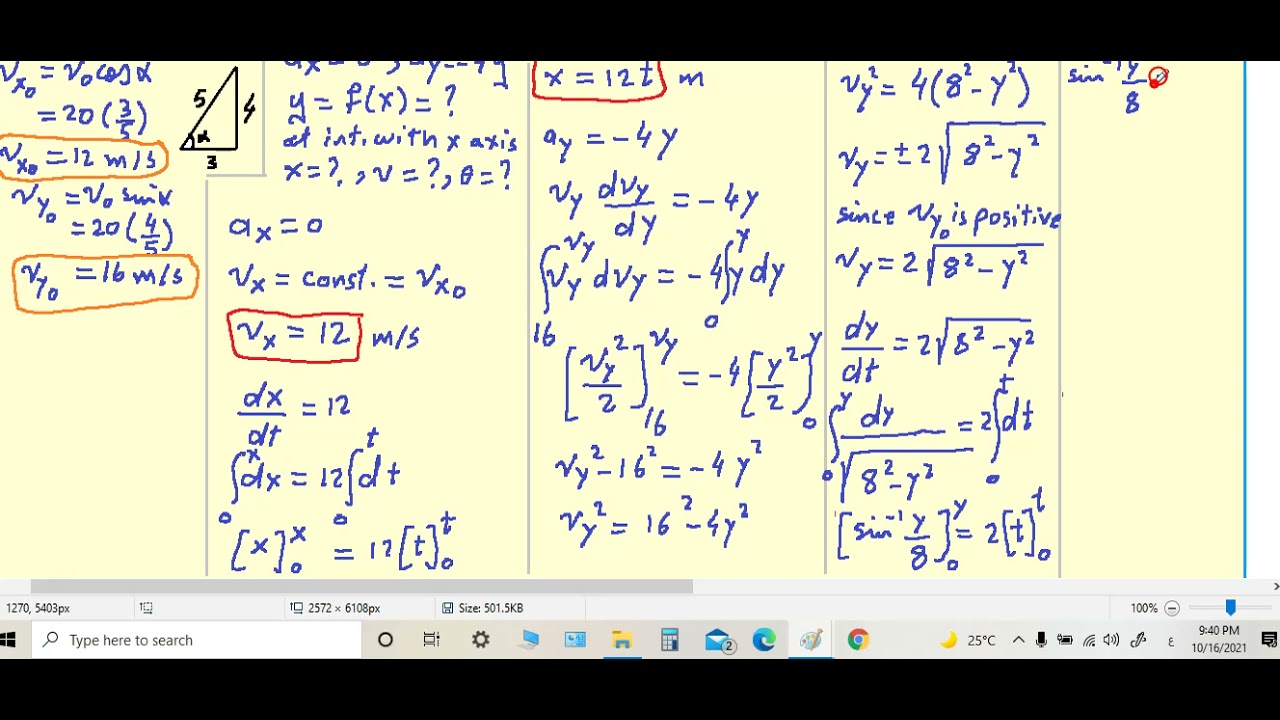 v_x₀ = v₀ cos α
= 20 (3/5)
v_x₀ = 12 m/s
v_y₀ = v₀ sin α
= 20 (4/5)
v_y₀ = 16 m/s
5
4
α
3
y = f(x) = ?
at int. with x axis
x = ?, v = ?, θ = ?
a_x = 0
v_x = const. = v_x₀
v_x = 12 m/s
dx/dt = 12
∫₀ˣ dx = 12 ∫₀ᵗ dt
[x]₀ˣ = 12 [t]₀ᵗ
x = 12t m
a_y = -4y
v_y dv_y/dy = -4y
∫₁₆^v_y v_y dv_y = -4 ∫₀ʸ y dy
[v_y²/2]₁₆^v_y = -4 [y²/2]₀ʸ
v_y² - 16² = -4y²
v_y² = 16² - 4y²
v_y² = 4(8² - y²)
v_y = ±2√(8² - y²)
since v_y₀ is positive
v_y = 2√(8² - y²)
dy/dt = 2√(8² - y²)
∫₀ʸ dy/√(8² - y²) = 2 ∫₀ᵗ dt
[sin⁻¹ y/8]₀ʸ = 2 [t]₀ᵗ
sin⁻¹ y/8
1270, 5403px
2572 × 6108px
Size: 501.5KB
100%
Type here to search
2
25°C
ع
9:40 PM
10/16/2021